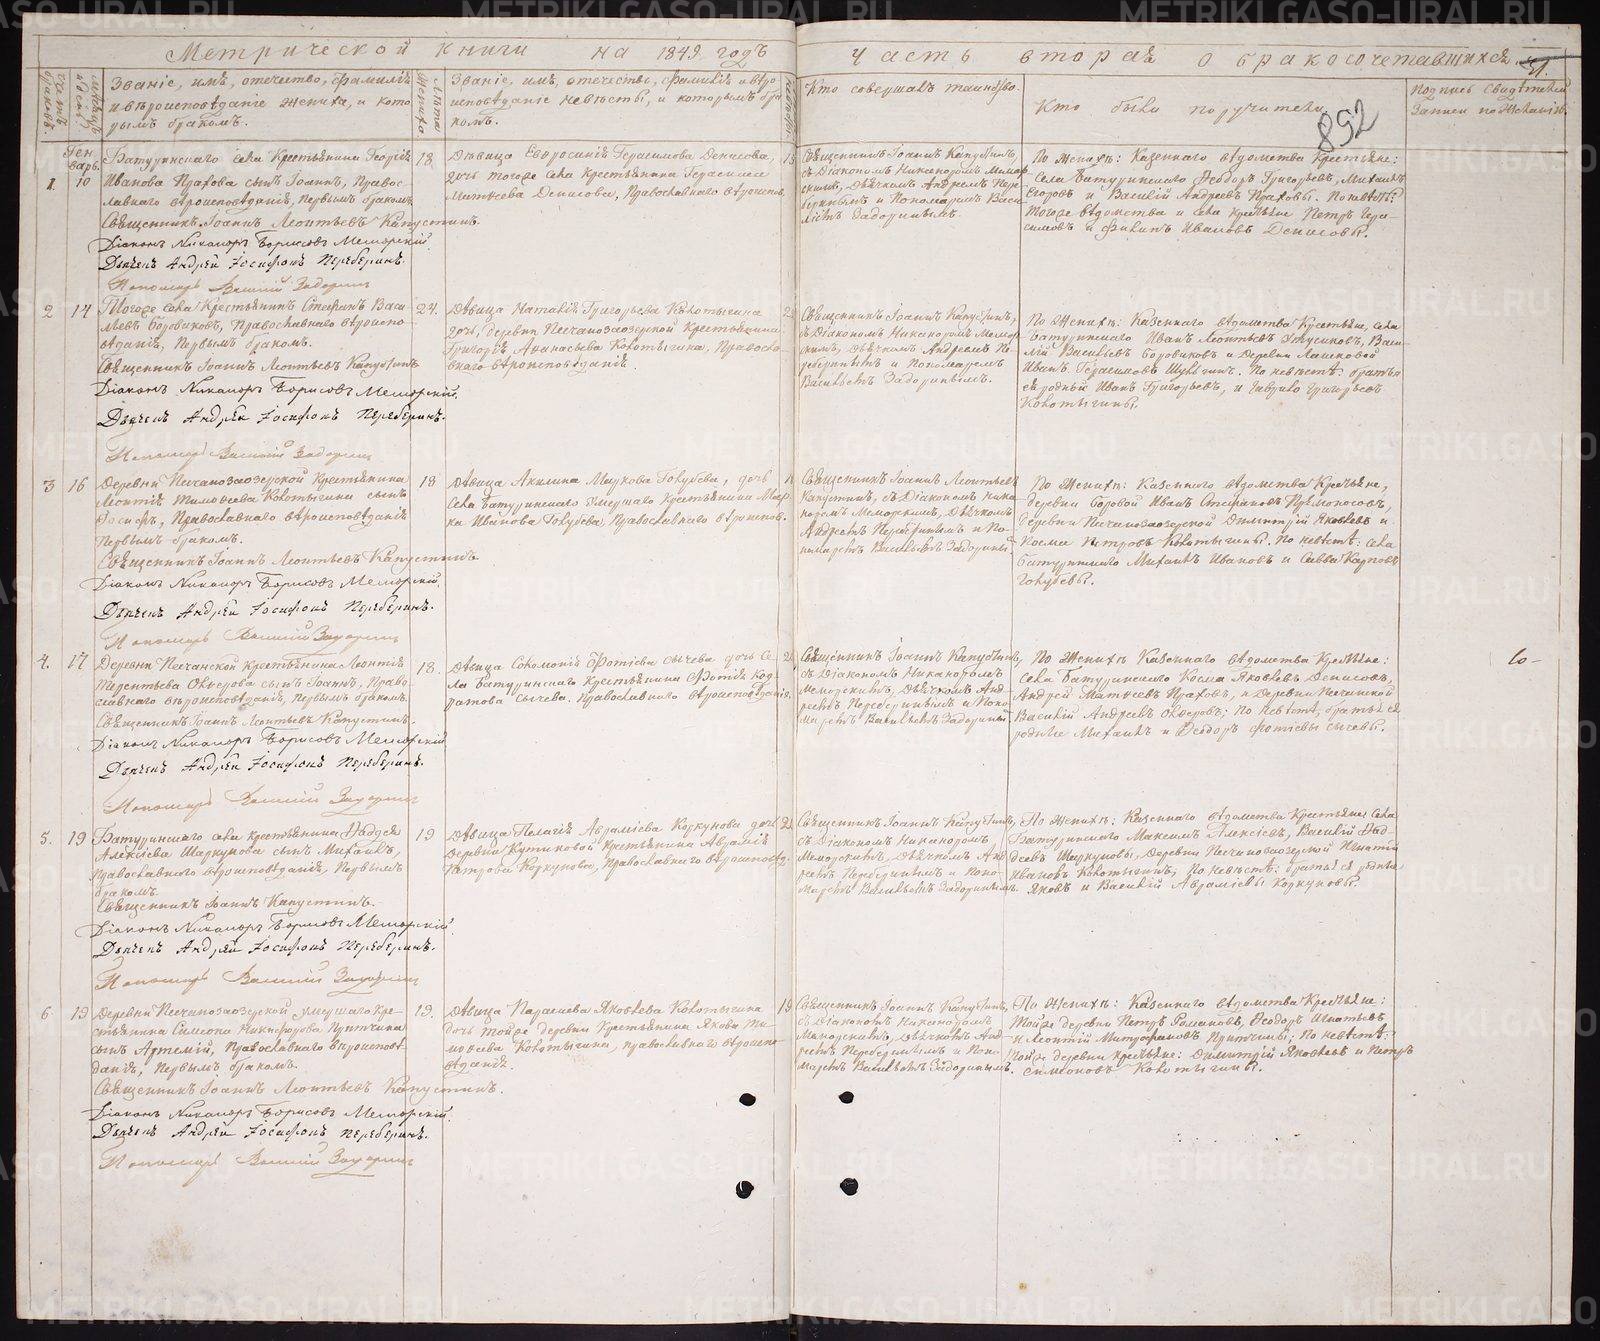 Метрической книги на 1849 годъ
Часть вторая о бракосочетавшихся
892
Званіе, имѣ, отечество, фамилія
и вѣроисповѣданіе жениха, и кото
рымъ бракомъ.
Званіе, имѣ, отечество, фамилія и вѣро
исповѣданіе невѣсты, и которымъ бра
комъ.
Кто совершалъ таинство.
Кто были поручители
Подпись свидѣтелей
Записи по желанію.
Ген
варь.
1. 10
Батуринскаго села Крестьянина Георгія
Иванова Прахова сынъ Іоаннъ, Правос-
лавнаго вѣроисповѣданія, первымъ бракомъ
Священникъ Іоаннъ Леонтьевъ Капустинъ.
Діаконъ Никаноръ Борисовъ Меморскій.
Дьячекъ Андрей Іосифовъ Переберинъ.
Пономарь Василій Задоринъ
18
Дѣвица Евфросинія Герасимова Денисова,
дочь тогоже села Крестьянина Герасима
Матвѣева Денисова, Православнаго вѣроиспов.
Священникъ Іоаннъ Капустинъ,
съ Діакономъ Никаноромъ Мемор
скимъ, Дьячкомъ Андреемъ Пере
беринымъ и Пономаремъ Васи
лІемъ Задоринымъ.
По женихѣ: Казеннаго вѣдомства Крестьяне:
Села Батуринскаго Ѳеодоръ Григорьевъ, Михаилъ
Егоровъ и Василій Андреевъ Праховы. По невѣстѣ:
тогоже вѣдомства и села крестьяне Петръ Гера-
симовъ и Филипъ Ивановъ Денисовы.
2 14
Тогоже села Крестьянинъ Стефанъ Васи
льевъ Боровиковъ, Православнаго вѣроиспо-
вѣданія, Первымъ бракомъ.
Священникъ Іоаннъ Леонтьевъ Капустинъ
Діаконъ Никаноръ Борисовъ Меморскій.
Дьячекъ Андрей Іосифовъ Переберинъ.
Пономарь Василій Задоринъ
24.
Дѣвица Наталія Григорьева Колотыгина
дочь, деревни Песчанозаозерской Крестьянина
Григорія Афанасьева Колотыгина, Правосла-
внаго вѣроисповѣданія.
Священникъ Іоаннъ Капустинъ,
съ Діакономъ Никаноромъ Мемор
скимъ, Дьячкомъ Андреемъ Пе-
реберинымъ и Пономаремъ
Васильемъ Задоринымъ.
По женихѣ: Казеннаго вѣдомства Крестьяне, села
Батуринскаго Иванъ Леонтьевъ, Васи-
лій Васильевъ Боровиковъ и Деревни
Иванъ Герасимовъ. По невѣстѣ: братья
ея родные Иванъ Григорьевъ, и Гаврило Григорьевъ
Колотыгины.
3 16
Деревни Песчанозаозерской Крестьянина
Леонтія Тимофеева Колотыгина сынъ
Іосифъ, Православнаго вѣроисповѣданія
Первымъ бракомъ.
Священникъ Іоаннъ Леонтьевъ Капустинъ.
Діаконъ Никаноръ Борисовъ Меморскій.
Дьячекъ Андрей Іосифовъ Переберинъ.
Пономарь Василій Задоринъ
18
Дѣвица Акилина Маркова Голубева, дочь
Села Батуринскаго умершаго Крестьянина Мар
ка Иванова Голубева, Православнаго вѣроиспов.
Священникъ Іоаннъ Леонтьевъ
Капустинъ, съ Діакономъ Ника
норомъ Меморскимъ, Дьячкомъ
Андреемъ Переберинымъ и По-
номаремъ Васильемъ Задоринымъ
По женихѣ: Казеннаго вѣдомства Крестьяне,
деревни Боровой Иванъ Стефановъ,
деревни Песчанозаозерской Димитрій Яковлевъ и
Косма Петровъ Колотыгины. По невѣстѣ: села
Батуринскаго Михаилъ Ивановъ и Савва Карповъ
Голубевы.
4. 17
Деревни Песчанской Крестьянина Леонтія
Терентьева сынъ Іоаннъ, Право-
славнаго вѣроисповѣданія, первымъ бракомъ.
Священникъ Іоаннъ Леонтьевъ Капустинъ.
Діаконъ Никаноръ Борисовъ Меморскій
Дьячекъ Андрей Іосифовъ Переберинъ.
Пономарь Василій Задоринъ
18.
Дѣвица Соломонія Фотіева Сычева дочь Се
ла Батуринскаго Крестьянина Фотія Код
ратова Сычева, Православнаго вѣроисповѣданія.
Священникъ Іоаннъ Капустинъ,
съ Діакономъ Никаноромъ
Меморскимъ, Дьячкомъ Анд
реемъ Переберинымъ и Поно
маремъ Васильемъ Задоринымъ
По женихѣ Казеннаго вѣдомства Крестьяне:
Села Батуринскаго Косма Яковлевъ Денисовъ,
Андрей Матвеевъ Праховъ, и Деревни Песчанской
Василій Андреевъ; по невѣстѣ, братья ея
родные Михаилъ и Ѳеодоръ Фотіевы Сычевы.
5. 19
Батуринскаго села крестьянина Фаддея
Алексіева Шаркунова сынъ Михаилъ,
Православнаго вѣроисповѣданія, Первымъ
бракомъ.
Священникъ Іоаннъ Капустинъ.
Діаконъ Никаноръ Борисовъ Меморскій
Дьячекъ Андрей Іосифовъ Переберинъ.
Пономарь Василій Задоринъ
19
Дѣвица Пелагія Авраміева Коркунова дочь
Деревни Кутиковой Крестьянина Аврамія
Петрова Коркунова, Православнаго вѣроисповѣд.
Священникъ Іоаннъ Капустинъ,
съ Діакономъ Никаноромъ
Меморскимъ, Дьячкомъ Анд
реемъ Переберинымъ и Поно-
маремъ Васильемъ Задоринымъ.
По женихѣ: Казеннаго вѣдомства Крестьяне Села
Батуринскаго Максимъ Алексіевъ, Василій Фад-
деевъ Шаркуновы, Деревни Песчанозаозерской Игнатій
Ивановъ Колотыгинъ, По невѣстѣ: братья ея родные
Яковъ и Василій Авраміевы Коркуновы.
6. 19
Деревни Песчанозаозерской умершаго Кре-
стьянина Симеона Никифорова Притчина
сынъ Артемій, Православнаго вѣроисповѣ-
данія, Первымъ бракомъ.
Священникъ Іоаннъ Леонтьевъ Капустинъ.
Діаконъ Никаноръ Борисовъ Меморскій.
Дьячекъ Андрей Іосифовъ Переберинъ.
Пономарь Василій Задоринъ
19.
Дѣвица Параскева Яковлева Колотыгина
дочь тойже деревни Крестьянина Якова Ти-
мофеева Колотыгина, православнаго вѣроиспо-
вѣданія.
19
Священникъ Іоаннъ Капустинъ,
съ Діакономъ Никаноромъ
Меморскимъ, Дьячкомъ Анд-
реемъ Переберинымъ и Поно-
маремъ Васильемъ Задоринымъ.
По женихѣ: Казеннаго вѣдомства Крестьяне:
Тойже деревни Петръ Романовъ, Ѳеодоръ Игнатьевъ
и Леонтій Митрофановъ Притчины; По невѣстѣ:
Тойже деревни крестьяне: Димитрій Яковлевъ и Петръ
Симоновъ Колотыгины.
METRIKI.GASO-URAL.RU